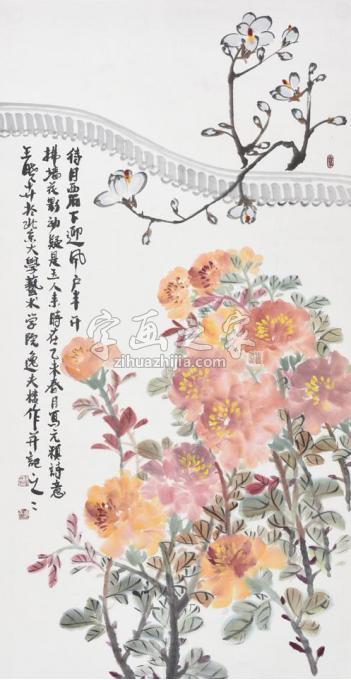 待月西厢下迎风户半开
拂墙花影动疑是玉人来時在乙未春月寫元稹詩意
王 於北京大學藝术学院逸夫楼作并記之
字画之家
www.zihuazhijia.com